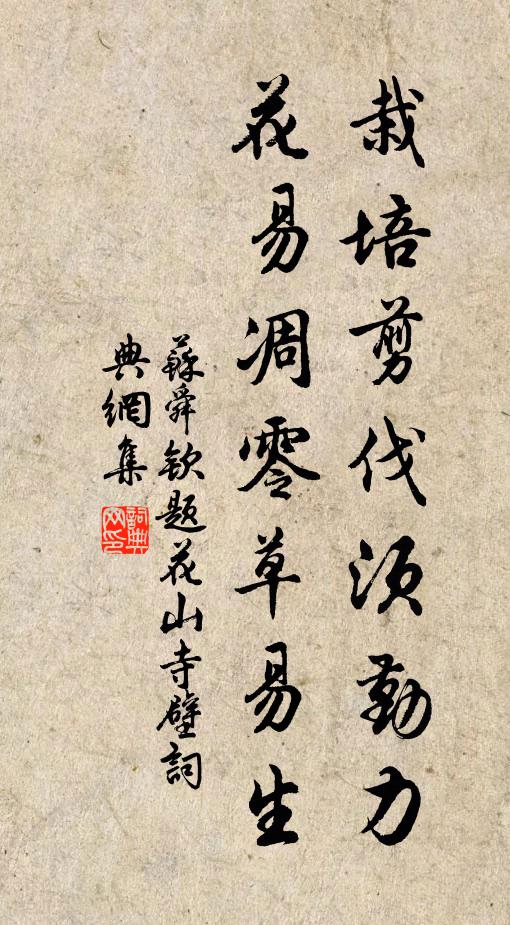 栽培剪伐須勤力
花易凋零草易生
蘇舜欽題花山寺壁詞
典網集
詞典网印